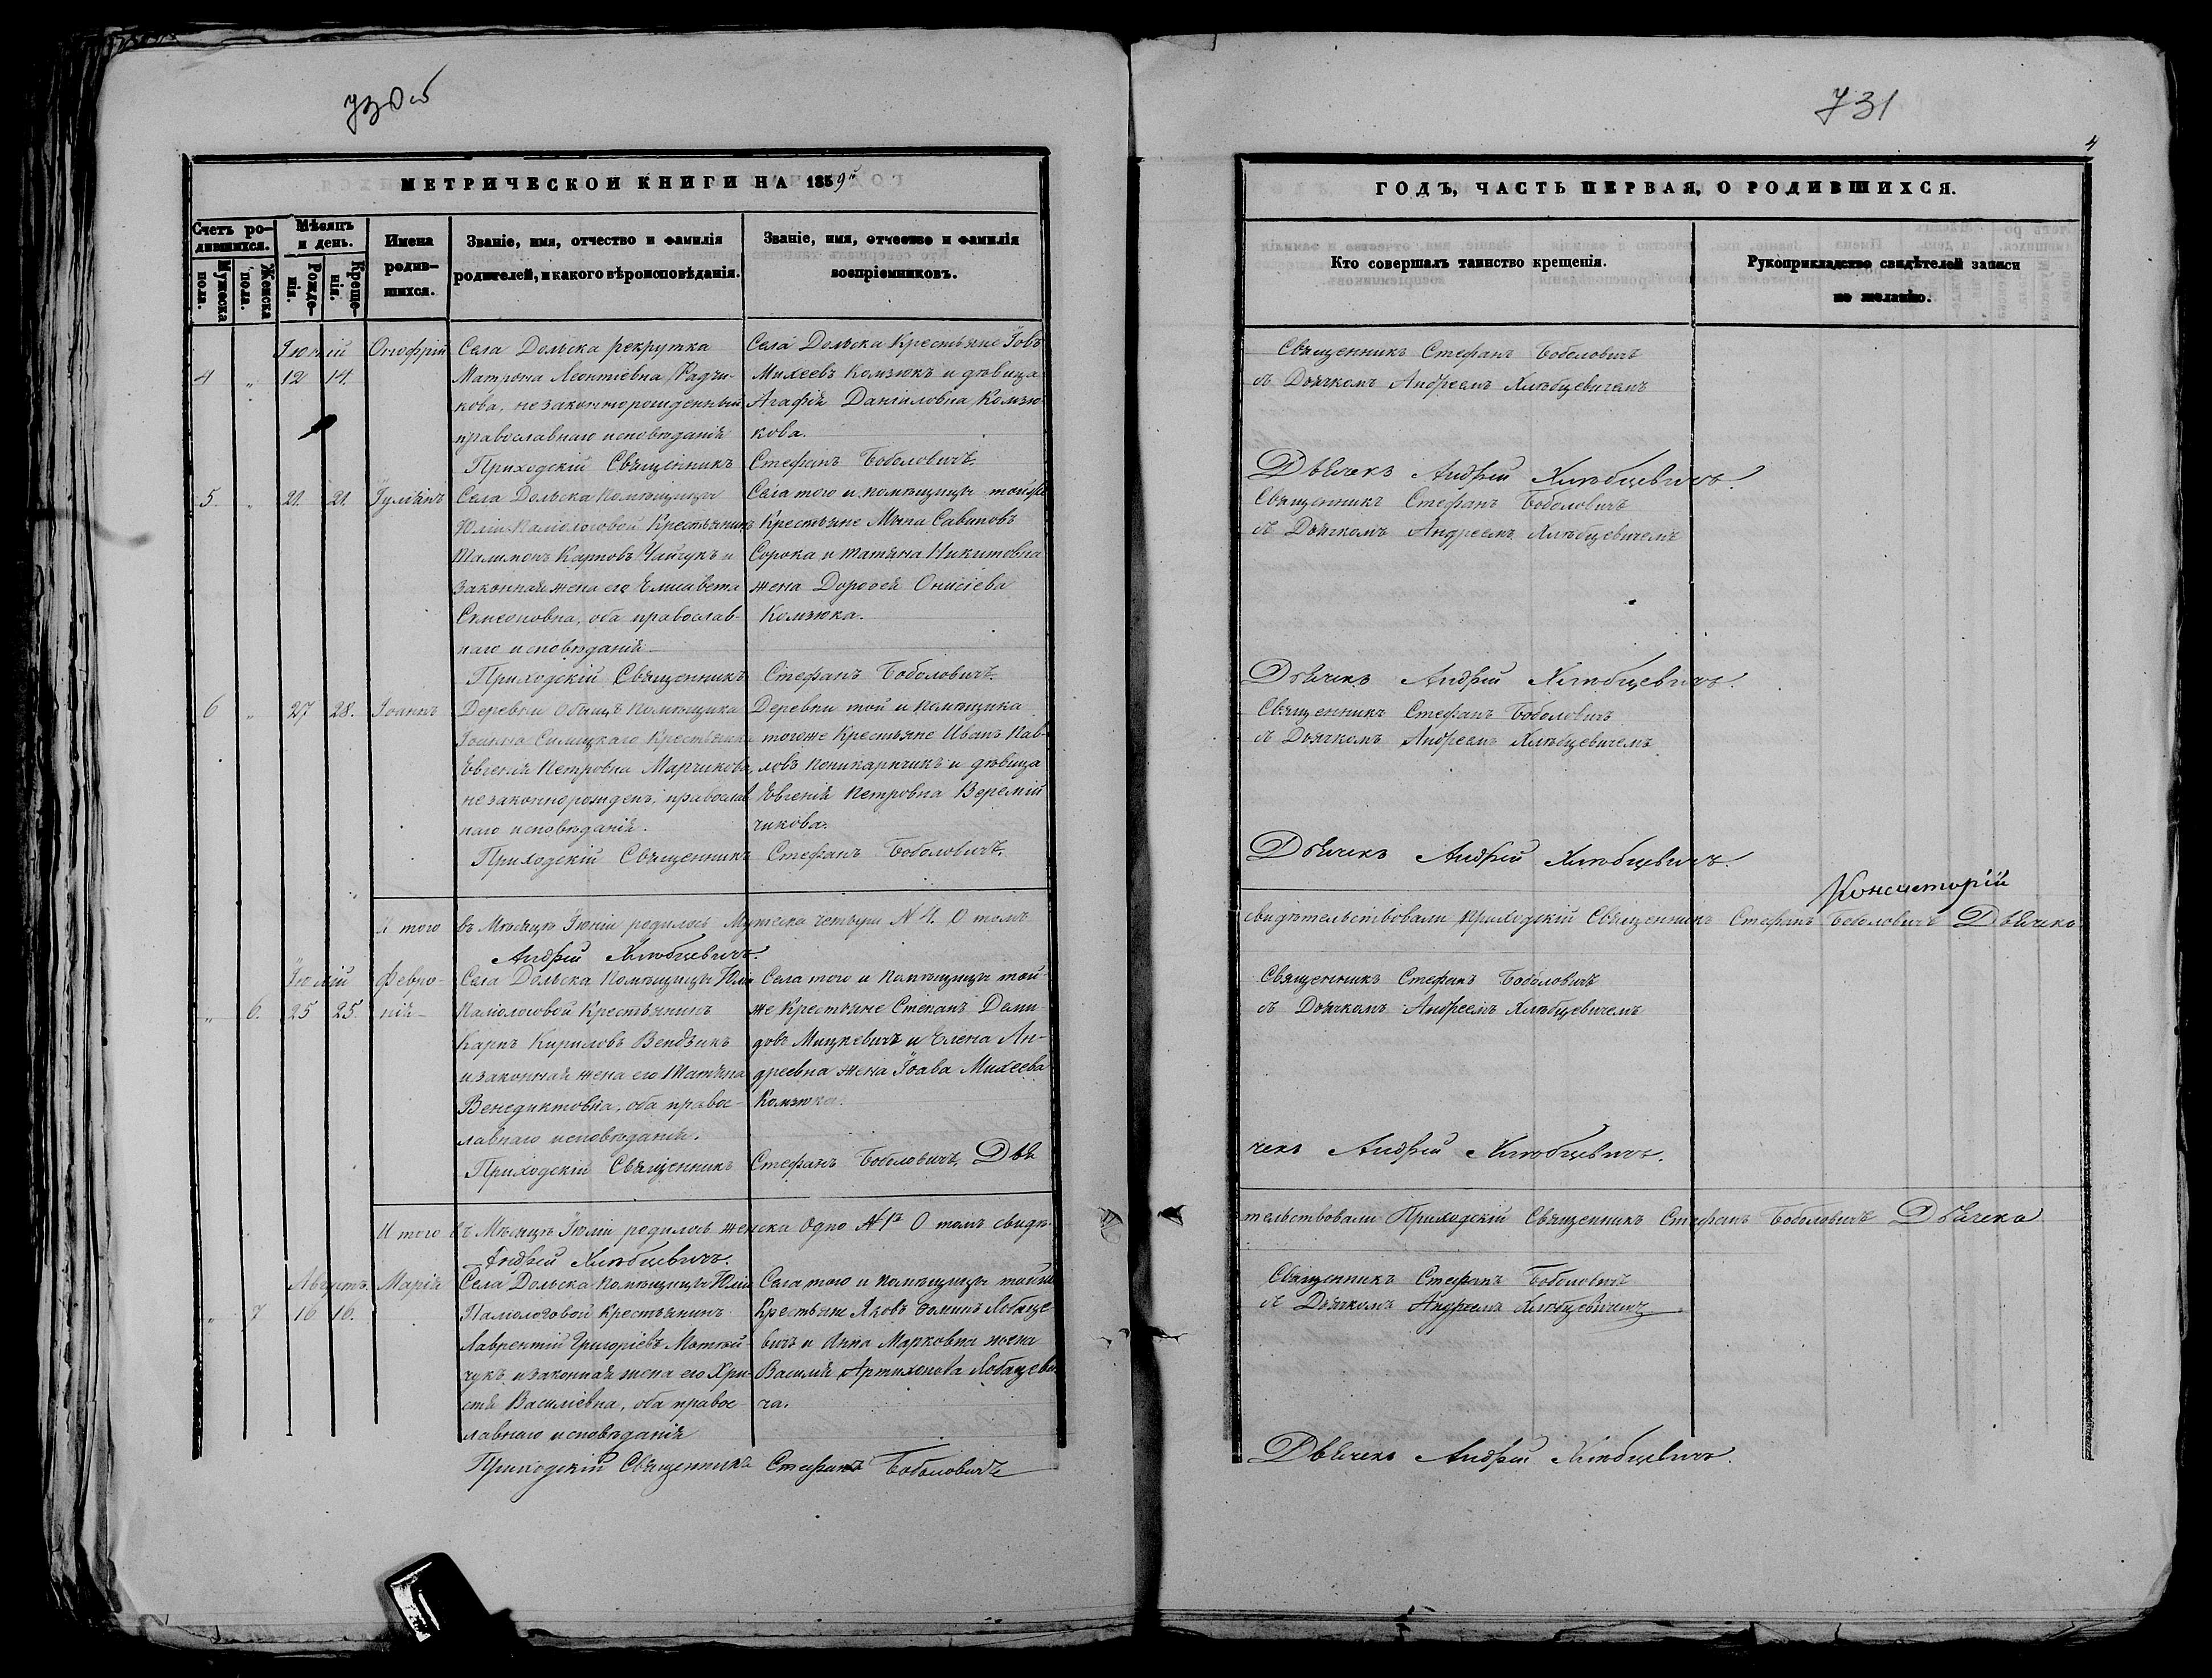 730об
МЕТРИЧЕСКОЙ КНИГИ НА 1859й
Счетъ родившихся.
Мужеска пола.
Женска пола.
Мѣсяцъ и день.
Рожденія.
Крещенія.
Имена родившихся.
Званіе, имя, отчество и фамилія
родителей, и какого вѣроисповѣданія.
Званіе, имя, отчество и фамилія
воспріемниковъ.
Іюній
4 " 12 14.
Онофрій
Села Дольска рекрутка
Матрона Леонтіевна Радчи-
кова, незаконнорожденный
православнаго исповѣданія
Села Дольска Крестьяне Іовъ
Михеевъ Комзюкъ и дѣвица
Агафія Даниловна Комзю-
кова.
Приходскій Священникъ Стефанъ Боболовичъ.
5 " 21. 21. Іуліанъ
Села Дольска помѣщицы
Юліи Палмологовой Крестьянинъ
Карповъ Чайчукъ и
законная жена его Елисавета
Симеоновна, оба православ-
наго исповѣданія
Села того и помѣщицы тойже
Крестьяне Мина Савиновъ
Сорока и Татьяна Никитовна
жена Дорофея Онисіева
Комзюка.
Приходскій Священникъ Стефанъ Боболовичъ.
6 " 27 28. Іоаннъ
Деревни помѣщика
Іоанна Крестьянка
Евгенія Петровна Марчикова,
незаконнорожденъ, православ
наго исповѣданія.
Деревни той и помѣщика
тогоже Крестьяне Иванъ Пав-
ловъ и дѣвица
Евгенія Петровна Веремій
чикова.
Приходскій Священникъ Стефанъ Боболовичъ.
И того въ Мѣсяцѣ Іюніи родилось Мужеска четыри N 4. О томъ
Андрей Хлѣбцевичъ.
Іюлій
" 6. 25 25.
Февро-
нія
Села Дольска Помѣщицы Юліи
Палмологовой Крестьянинъ
Карпъ Кириловъ Вендзикъ
и законная жена его Татьяна
Венедиктовна, оба правос-
лавнаго исповѣданія.
Села того и помѣщицы той-
же Крестьяне Степанъ Деми-
довъ Мицкевичъ и Елена Ан-
дреевна жена Іоава Михеева
Комзюка.
Приходскій Священникъ Стефанъ Боболовичъ. Дья
И того въ Мѣсяцѣ Іюліи родилось женска одно N 1е О томъ свидѣ-
Андрей Хлѣбцевичъ.
Августъ.
" 7 16 16.
Марія
Села Дольска помѣщицы Юліи
Палмологовой Крестьянинъ
Лаврентій Григоріевъ Матвій-
чукъ и законная жена его Хри-
стя Василіевна, оба правос-
лавнаго исповѣданія
Села того и помѣщицы тойже
Крестьяне Яковъ Ѳоминъ Лобаце-
вичъ и Анна Марковна жена
Василія Лобацеви-
ча.
Приходскій Священникъ Стефанъ Боболовичъ
731
4
ГОДЪ, ЧАСТЬ ПЕРВАЯ, О РОДИВШИХСЯ.
Кто совершалъ таинство крещенія.
Рукоприкладство свидѣтелей записи
по желанію.
Священникъ Стефанъ Боболовичъ
съ Дьячкомъ Андреемъ Хлѣбцевичемъ
Дьячекъ Андрей Хлѣбцевичъ.
Священникъ Стефанъ Боболовичъ
съ Дьячкомъ Андреемъ Хлѣбцевичемъ
Дьячекъ Андрей Хлѣбцевичъ.
Священникъ Стефанъ Боболовичъ
съ Дьячкомъ Андреемъ Хлѣбцевичемъ
Дьячекъ Андрей Хлѣбцевичъ.
Консисторіи
свидѣтельствовали Приходскій Священникъ Стефанъ Боболовичъ Дьячекъ
Священникъ Стефанъ Боболовичъ
съ Дьячкомъ Андреемъ Хлѣбцевичемъ
чекъ Андрей Хлѣбцевичъ.
тельствовали Приходскій Священникъ Стефанъ Боболовичъ Дьячекъ
Священникъ Стефанъ Боболовичъ
съ Дьячкомъ Андреемъ Хлѣбцевичемъ
Дьячекъ Андрей Хлѣбцевичъ.